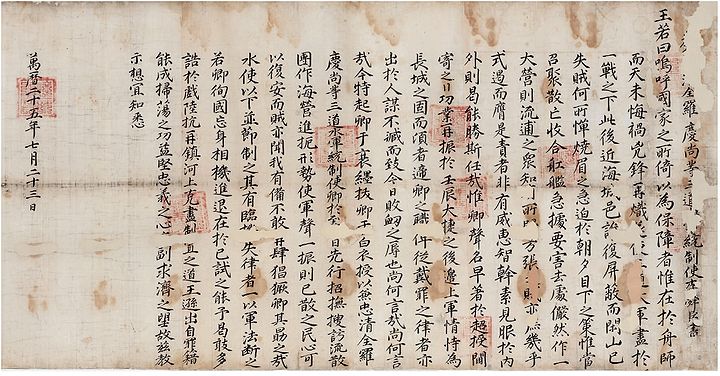 全羅慶尚等三道統制使
王若曰嗚呼國家之所倚以爲保障者惟在於舟師
而天未悔禍兇鋒再熾大軍盡於
一戰之下此後近海城邑誰復屛蔽而閑山已
失賊何所憚燒眉之急迫於朝夕目下之策惟當
召聚散亡收合船艦急據要害去處儼然作一
大營則流逋之衆知所方張賊亦幾乎
式遏而膺是責者非有威惠智幹素見服於內
外則曷能勝斯任哉惟卿聲名早著於超授閫
寄之日功業再振於壬辰大捷之後邊上軍情恃爲
長城之固而頃者遞卿之職俾從戴罪之律者亦
出於人謀不臧而致今日敗衄之辱也尚何言哉尚何言
哉今特起卿于衰絰拔卿于白衣授以兼忠清全羅
慶尚等三道水軍統制使卿於至日先行招撫搜訪流散
團作海營進扼形勢使軍聲一振則已散之民心可
以復安而賊亦聞我有備不敢再肆猖獗卿其勗之哉
水使以下並節制之其有臨機失律者一以軍法斷之
若卿徇國忘身相機進退在於已試之能予曷敢多
誥於戲陸抗再鎮河上克盡制置之道王遜出自罪籍
能成掃蕩之功益堅忠義之心庶副求濟之望故茲教
示想宜知悉
萬曆二十五年七月二十三日